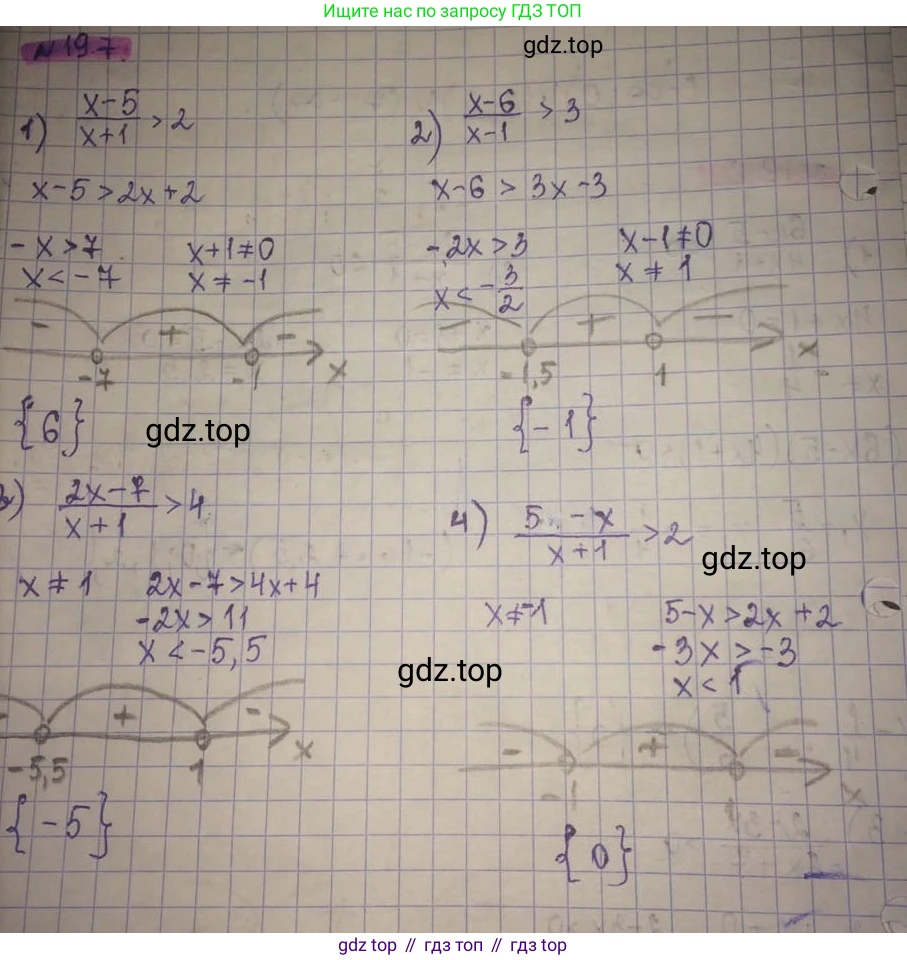 Ищите нас по запросу ГДЗ ТОП
gdz.top
№ 19.7.
1) (x-5)/(x+1) > 2
x-5 > 2x+2
-x > 7
x < -7
x+1≠0
x ≠ -1
- + -
-7 -1 x
{6}
gdz.top
2) (x-6)/(x-1) > 3
x-6 > 3x-3
-2x > 3
x < -3/2
x-1≠0
x ≠ 1
- + -
-1,5 1 x
{-1}
3) (2x-7)/(x+1) > 4
x ≠ 1
2x-7 > 4x+4
-2x > 11
x < -5,5
gdz.top
- + -
-5,5 1 x
{-5}
4) (5-x)/(x+1) > 2
gdz.top
x ≠ -1
5-x > 2x+2
-3x > -3
x < 1
- + -
-1 1 x
{0}
gdz.top // гдз топ // gdz.top